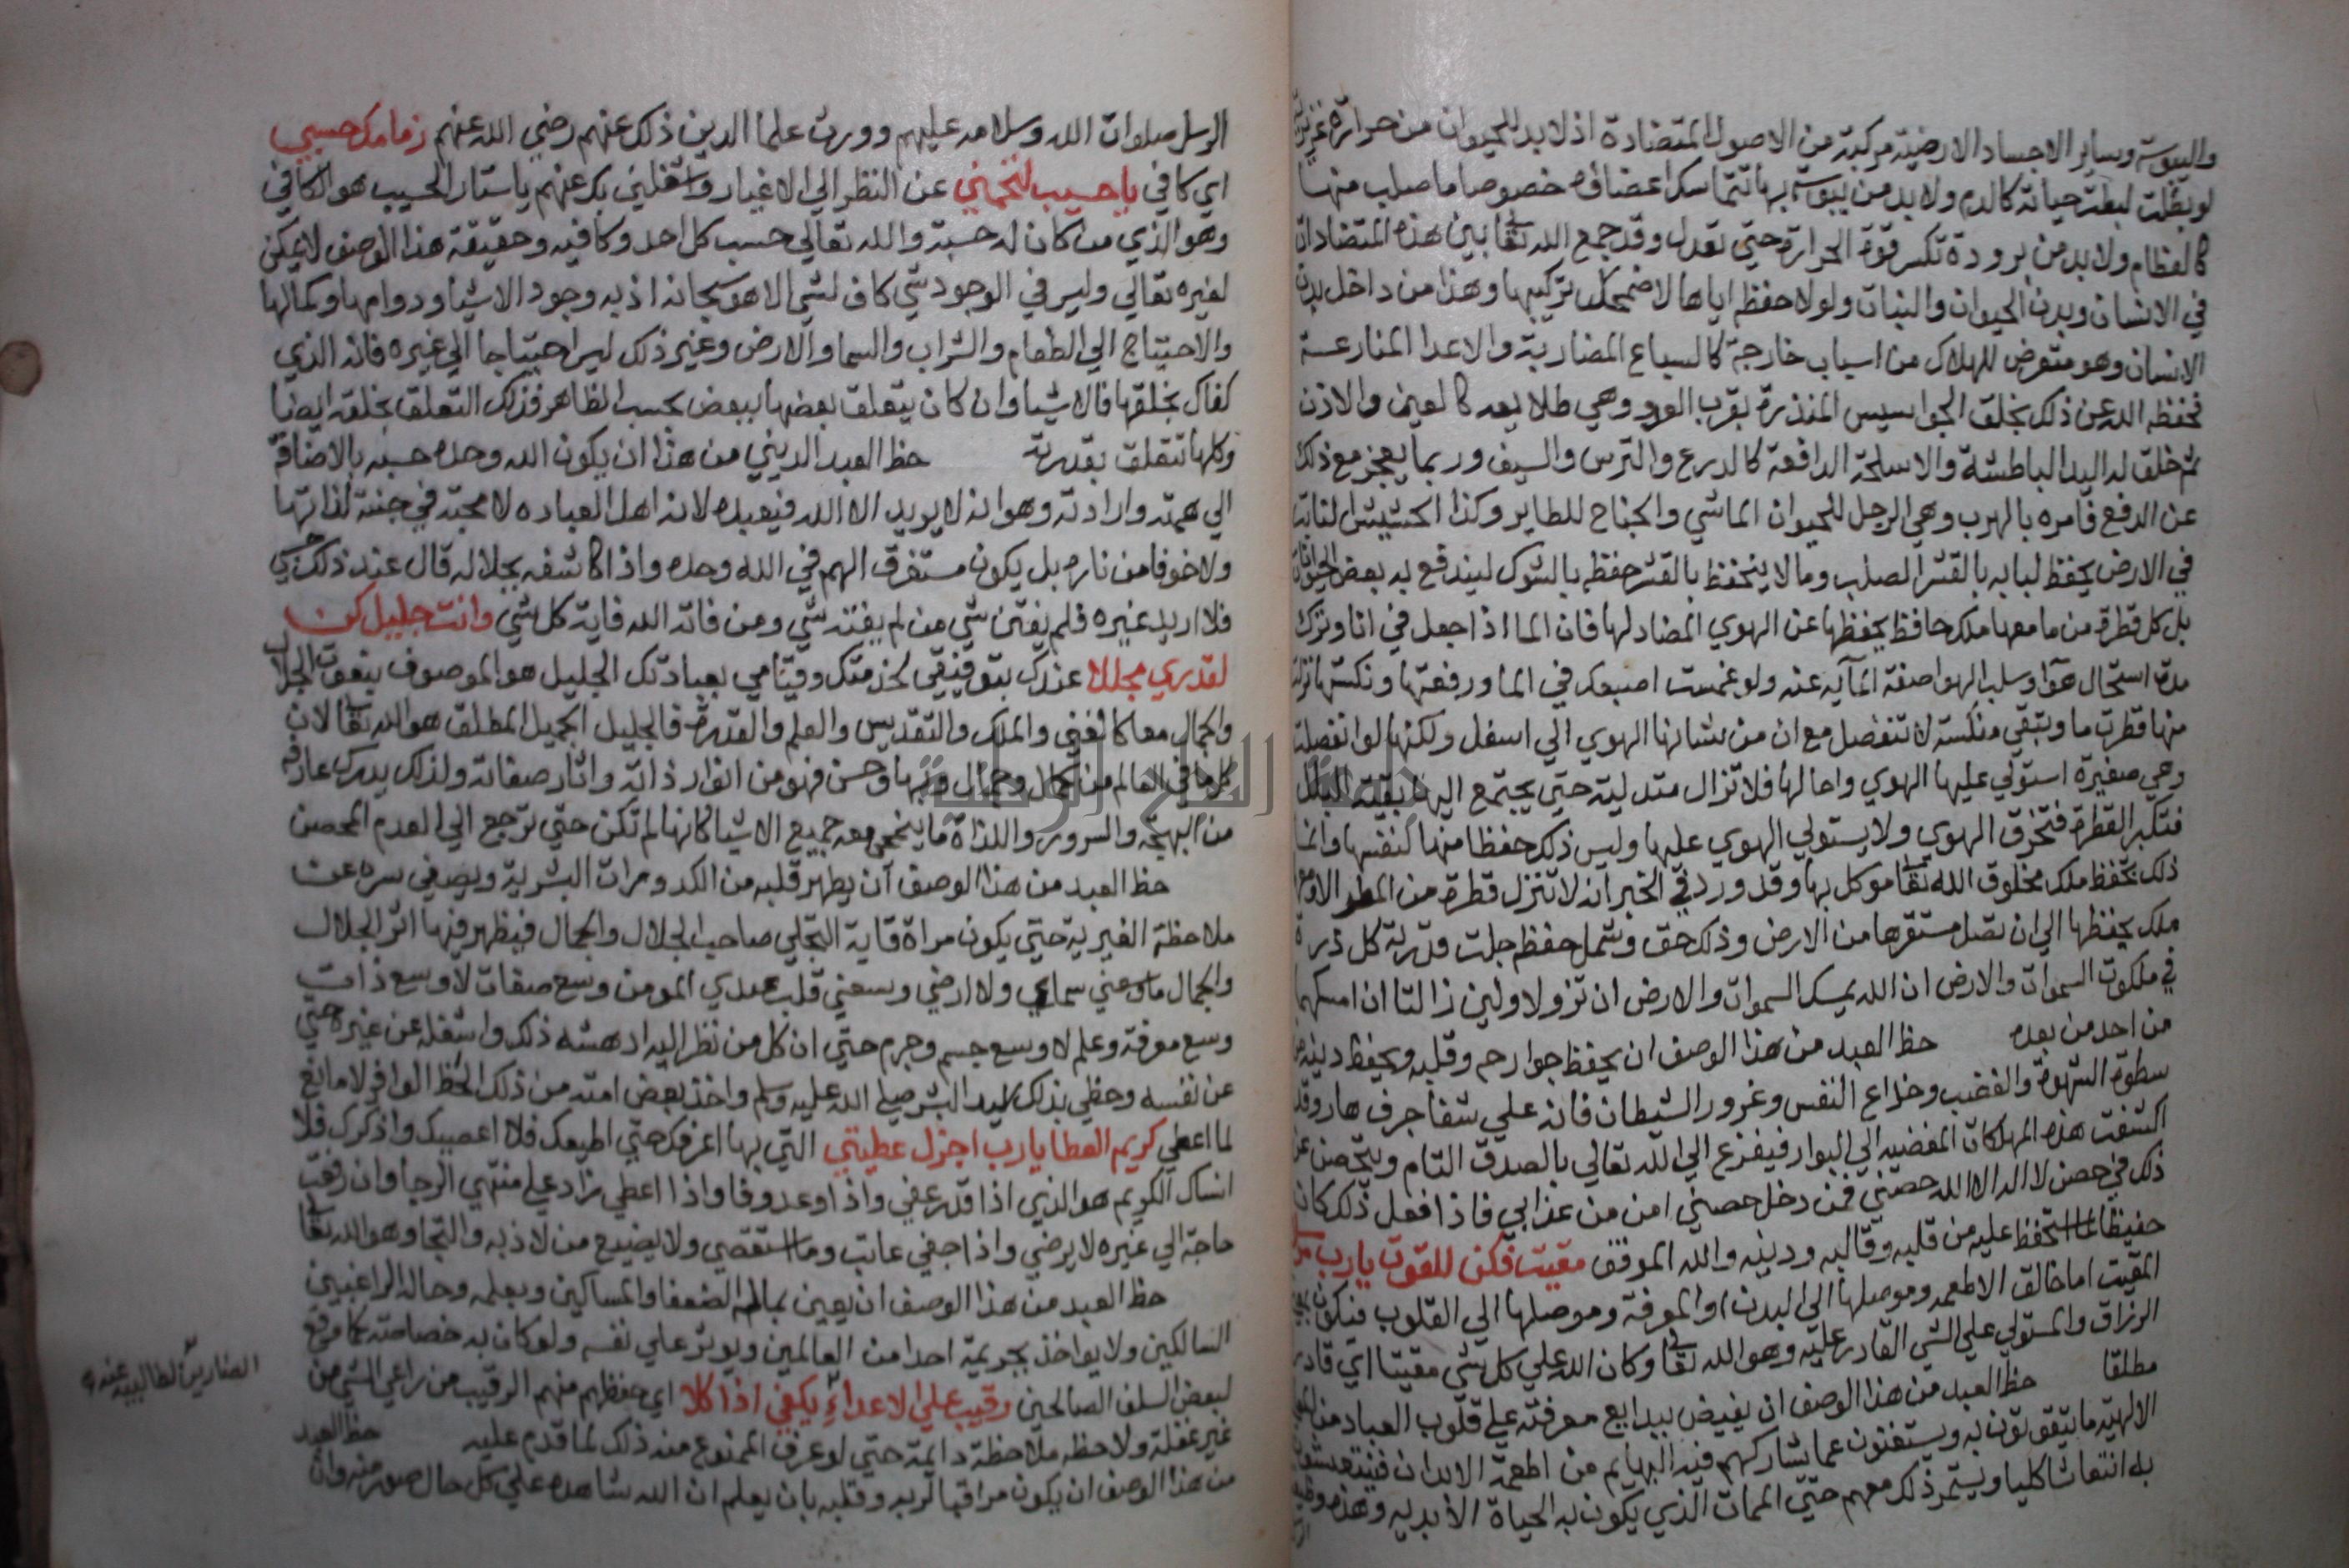 واليبوسة وساير الاجساد الارضية مركبة من الاصول المتضادة اذ لا بد للحيوان من حرارة غريزية
لو بطلت لبطلت حياته كالدم ولا بد من يبوسة بها تتماسك اعضاؤه خصوصا ما صلب منها
كالعظام ولا بد من برودة تكسر قوة الحرارة حتي تعدل وقد جمع الله تعا بين هذه المتضادات
في الانسان وبدن الحيوان والنبات ولولا حفظه اياها لاضمحل تركيبها وهذا من داخل بدن
الانسان وهو متعرض للهلاك من اسباب خارجة كالسباع الضارية والاعدا المنازعة
فحفظه الله عن ذلك بخلق الجواسيس المنذرة بقرب العدو وهي طلايعه كالعين والاذن
ثم خلق له اليد الباطشة والاسلحة الدافعة كالدرع والترس والسيف وربما يعجز مع ذلك
عن الدفع فامره بالهرب وهي الرجل للحيوان الماشي والجناح للطاير وكذا الحشيش النابت
في الارض يحفظ لبابه بالقشر الصلب وما لا ينحفظ بالقشر حفظه بالشوك ليندفع به بعض الحيوانات
بل كل قطرة من ما معها ملك حافظ يحفظها عن الهوي المضاد لها فان الما اذا جعل في انا وترك
مدة استحال هوا وسلب الهوا صفة المآيه عنه ولو غمست اصبعك في الما ورفعتها ونكستها تدلت
منها قطرت ما وتبقي منكسة لا تنفصل مع ان من شانها الهوي الي اسفل ولكنها لو انفصلت
وهي صغيرة استولي عليها الهوي واحالها فلا تزال متدلية حتي يجتمع اليها بقية البلل
فتكبر القطرة فتخرق الهوي ولا يستولي الهوي عليها وليس ذلك حفظا منها لنفسها وانما
ذلك بحفظ ملك مخلوق الله تعا موكل بها وقد ورد في الخبر انه لا تنزل قطرة من المطر الا ومعها
ملك يحفظها الي ان تصل مستقرها من الارض وذلك حق وشمل حفظ جلت قدرته كل ذرة
في ملكوت السموات والارض ان الله يمسك السموات والارض ان تزولا ولين زالتا ان امسكهما
من احد من بعده حظ العبد من هذا الوصف ان يحفظ جوارحه وقلبه ويحفظ دينه من
سطوة الشهوة والغضب وخداع النفس وغرور الشيطان فانه علي شفا جرف هار وقد
اكتنفت هذه المهلكات المفضيه الي البوار فيفزع الي الله تعالي بالصدق التام ويتحصن عن
ذلك في حصن لا اله الا الله حصني فمن دخل حصني امن من عذابي فاذا فعل ذلك كان
حفيظا لما استحفظ عليه من قلبه وقالبه ودينه والله الموفق مقيت فكن للقوت يا رب
المقيت اما خالق الاطعمه وموصلها الي البدن او المعرفة وموصلها الي القلوب فيكون بمعني
الرزاق والمستولي علي الشي القادر عليه وهو الله تعا وكان الله علي كل شي مقيتا اي قادر
مطلقا حظ العبد من هذا الوصف ان يفيض ببدايع معرفته علي قلوب العباد من
الالهية ما يتقوتون به ويستغنون عما تشاركهم فيه البهايم من اطعمة الابدان فينتعشون
به انتعاشا كليا ويستمر ذلك معهم حتي الممات الذي يكون به الحياة الابديه وهذه
الرسل صلوات الله وسلامه عليهم وورث علما الدين ذلك عنهم رضي الله عنهم زمامك حسبي
اي كافي يا حسيب لتحمني عن النظر الي الاغيار وشغلني بك عنهم يا ستار الحسيب هو الكافي
وهو الذي من كان له حسبه والله تعالي حسب كل احد وكافيه وحقيقة هذا الوصف لا يمكن
لغيره تعالي وليس في الوجود شي كاف لشي الا هو سبحانه اذ به وجود الاشيا ودوامها وكمالها
والاحتياج الي الطعام والشراب والسما والارض وغير ذلك ليس احتياجا الي غيره فانه الذي
كفاك بخلقها فالاشيا وان كان يتعلق بعضها ببعض بحسب الظاهر فذلك التعلق بخلقه ايضا
وكلها تتعلق بقدرته حظ العبد الديني من هذا ان يكون الله وحده حسبه بالاضافة
الي همته وارادته وهو انه لا يريد الا الله فيعبده لانه اهل العباده لا محبة في جنته لذاتها
ولا خوفا من ناره بل يكون مستغرق الهم في الله وحده واذا كاشفه بجلاله قال عند ذلك حسبي
فلا اريد غيره فلم يفتن شي من لم يفته شي ومن فاته الله فاته كل شي وانت جليل كن
لقدري مجللا عندك بتوفيقي لخدمتك وقيامي بعبادتك الجليل هو الموصوف بنعوت الجلال
والجمال معا كالغني والملك والتقديس والعلم والقدرة فالجليل الجميل المطلق هو الله تعا لان
كل ما في العالم من كمال وجمال وبها وحسن فهو من انوار ذاته واثار صفاته ولذلك يدرك عارفه
من البهجة والسرور واللذاة ما ينمحي معه جميع الاشيا كانها لم تكن حتي ترجع الي العدم المحض
حظ العبد من هذا الوصف ان يطهر قلبه من الكدورات البشرية ويصفي سره عن
ملاحظة الغيرية حتي يكون مراة قاية التجلي صاحب الجلال والجمال فيظهر فيها اثر الجلال
والجمال ما وسعني سماي ولا ارضي وسعني قلب عبدي المومن وسع صفات لا وسع ذات
وسع معرفة وعلم لا وسع جسم وجرم حتي ان كل من نظر اليه ادهشه ذلك واشغله عن غيره حتي
عن نفسه وحظي بذلك سيد البشر صلي الله عليه وسلم واخذ بعض امته من ذلك الحظ الوافر لا مانع
لما اعطي كريم العطا يا رب اجزل عطيتي التي بها اعرفك حتي اطيعك فلا اعصيك واذكرك فلا
انساك الكريم هو الذي اذا قدر عفي واذا وعد وفا واذا اعطي زاد علي منتهي الرجا وان رفعت
حاجة الي غيره لا يرضي واذا جفي عاتب وما استقصي ولا يضيع من لاذ به والتجا وهو الله تعا
حظ العبد من هذا الوصف ان يعين بماله الضعفا والمساكين وبعلمه وحاله الراغبين
السالكين ولا يواخذ بجريمة احدا من العالمين ويوثر علي نفسه ولو كان به خصاصة كما وقع
لبعض السلف الصالحين رقيب علي الاعداء يكفي اذا كلا اي حفظهم منهم الرقيب من راعي الشي من
غير غفلة ولاحظه ملاحظة دايمة حتي لو عرف الممنوع منه ذلك لما قدم عليه حظ العبد
من هذا الوصف ان يكون مراقبا لربه وقلبه بان يعلم ان الله شاهده علي كل حال